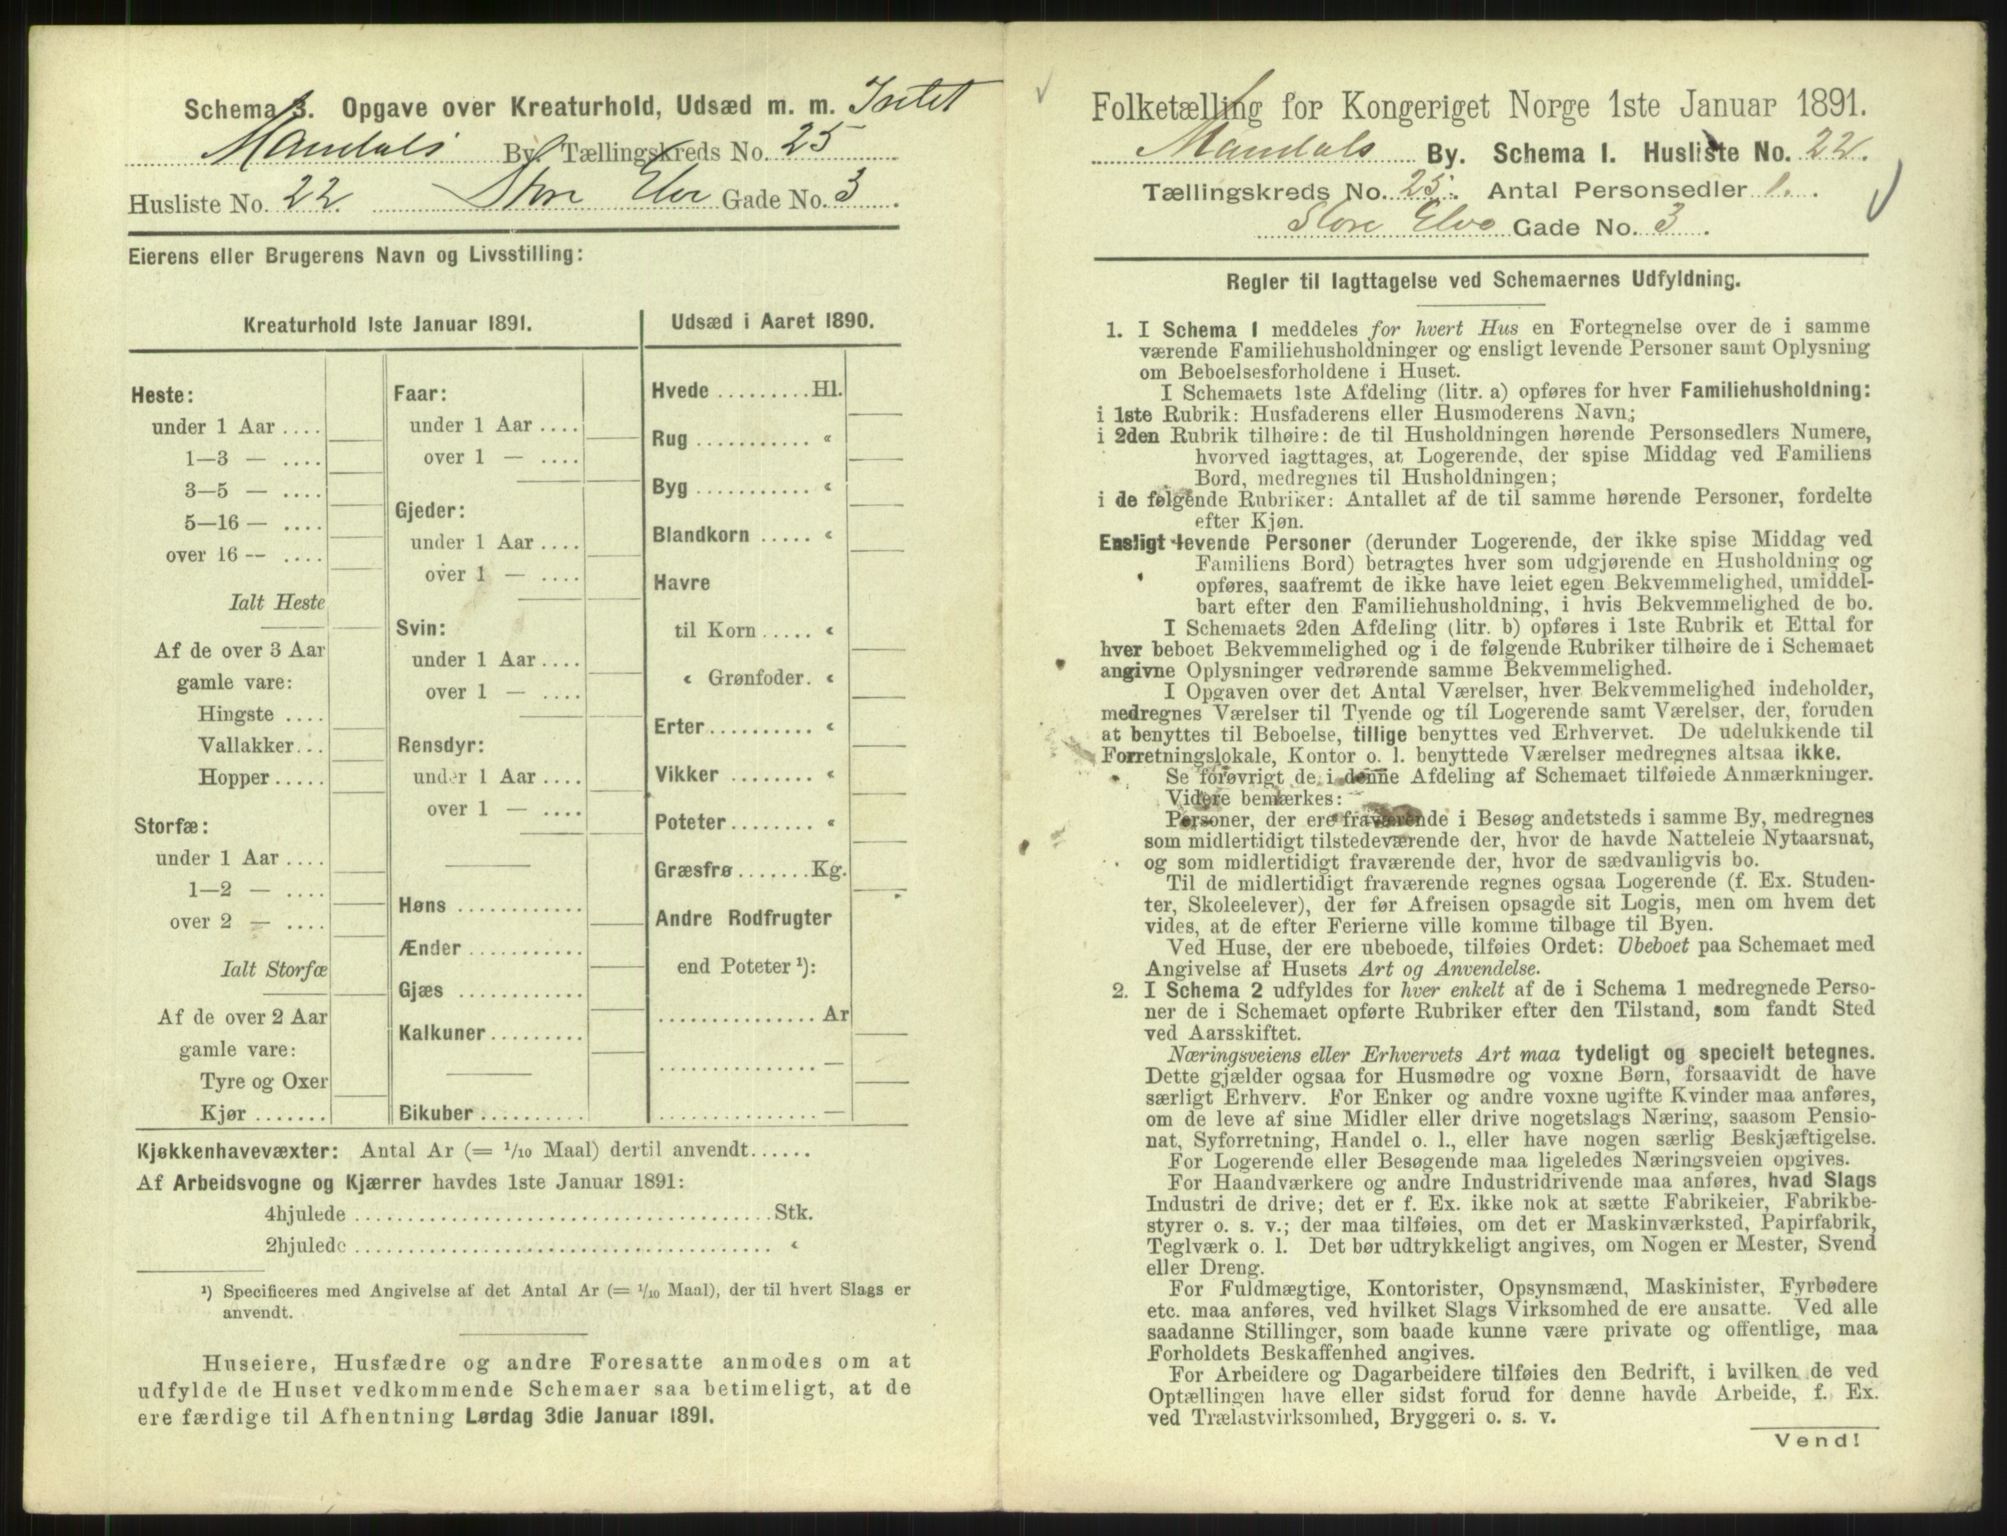 Schema 3. Opgave over Kreaturhold, Udsæd m. m. Intet
Mandals By. Tællingskreds No. 25
Husliste No. 22. Store Elve Gade No. 3.
Eierens eller Brugerens Navn og Livsstilling:
Kreaturhold 1ste Januar 1891.
Heste:
under 1 Aar ....
1—3 — ....
3—5 — ....
5—16 — ....
over 16 — ....
Ialt Heste
Af de over 3 Aar
gamle vare:
Hingste ....
Vallakker...
Hopper.....
Storfæ:
under 1 Aar ....
1—2 — ....
over 2 — ....
Ialt Storfæ
Af de over 2 Aar
gamle vare:
Tyre og Oxer
Kjør .......
Faar:
under 1 Aar ....
over 1 — ....
Gjeder:
under 1 Aar ....
over 1 — ....
Svin:
under 1 Aar ....
over 1 — ....
Rensdyr:
under 1 Aar ....
over 1 — ....
Høns ............
Ænder ...........
Gjæs ............
Kalkuner.........
Bikuber ..........
Udsæd i Aaret 1890.
Hvede .........Hl.
Rug ........... «
Byg ........... «
Blandkorn ..... «
Havre
til Korn ..... «
« Grønfoder. «
Erter.......... «
Vikker ........ «
Poteter........ «
Græsfrø.......Kg.
Andre Rodfrugter
end Poteter ¹):
............... Ar
............... —
............... —
Kjøkkenhavevæxter: Antal Ar (= 1/10 Maal) dertil anvendt......
Af Arbeidsvogne og Kjærrer havdes 1ste Januar 1891:
4hjulede ......................................Stk.
2hjulede ...................................... «
¹) Specificeres med Angivelse af det Antal Ar (= 1/10 Maal), der til hvert Slags er
anvendt.
Huseiere, Husfædre og andre Foresatte anmodes om at
udfylde de Huset vedkommende Schemaer saa betimeligt, at de
ere færdige til Afhentning Lørdag 3die Januar 1891.
Folketælling for Kongeriget Norge 1ste Januar 1891.
Mandals By. Schema I. Husliste No. 22.
Tællingskreds No. 25. Antal Personsedler 1.
Store Elve Gade No. 3.
Regler til Iagttagelse ved Schemaernes Udfyldning.
1. I Schema 1 meddeles for hvert Hus en Fortegnelse over de i samme
værende Familiehusholdninger og ensligt levende Personer samt Oplysning
om Beboelsesforholdene i Huset.
I Schemaets 1ste Afdeling (litr. a) opføres for hver Familiehusholdning:
i 1ste Rubrik: Husfaderens eller Husmoderens Navn;
i 2den Rubrik tilhøire: de til Husholdningen hørende Personsedlers Numere,
hvorved iagttages, at Logerende, der spise Middag ved Familiens
Bord, medregnes til Husholdningen;
i de følgende Rubriker: Antallet af de til samme hørende Personer, fordelte
efter Kjøn.
Ensligt levende Personer (derunder Logerende, der ikke spise Middag ved
Familiens Bord) betragtes hver som udgjørende en Husholdning og
opføres, saafremt de ikke have leiet egen Bekvemmelighed, umiddel-
bart efter den Familiehusholdning, i hvis Bekvemmelighed de bo.
I Schemaets 2den Afdeling (litr. b) opføres i 1ste Rubrik et Ettal for
hver beboet Bekvemmelighed og i de følgende Rubriker tilhøire de i Schemaet
angivne Oplysninger vedrørende samme Bekvemmelighed.
I Opgaven over det Antal Værelser, hver Bekvemmelighed indeholder,
medregnes Værelser til Tyende og til Logerende samt Værelser, der, foruden
at benyttes til Beboelse, tillige benyttes ved Erhvervet. De udelukkende til
Forretningslokale, Kontor o. l. benyttede Værelser medregnes altsaa ikke.
Se forøvrigt de i denne Afdeling af Schemaet tilføiede Anmærkninger.
Videre bemærkes:
Personer, der ere fraværende i Besøg andetsteds i samme By, medregnes
som midlertidigt tilstedeværende der, hvor de havde Natteleie Nytaarsnat,
og som midlertidigt fraværende der, hvor de sædvanligvis bo.
Til de midlertidigt fraværende regnes ogsaa Logerende (f. Ex. Studen-
ter, Skoleelever), der før Afreisen opsagde sit Logis, men om hvem det
vides, at de efter Ferierne ville komme tilbage til Byen.
Ved Huse, der ere ubeboede, tilføies Ordet: Ubeboet paa Schemaet med
Angivelse af Husets Art og Anvendelse.
2. I Schema 2 udfyldes for hver enkelt af de i Schema 1 medregnede Perso-
ner de i Schemaet opførte Rubriker efter den Tilstand, som fandt Sted
ved Aarsskiftet.
Næringsveiens eller Erhvervets Art maa tydeligt og specielt betegnes.
Dette gjælder ogsaa for Husmødre og voxne Børn, forsaavidt de have
særligt Erhverv. For Enker og andre voxne ugifte Kvinder maa anføres,
om de leve af sine Midler eller drive nogetslags Næring, saasom Pensio-
nat, Syforretning, Handel o. l., eller have nogen særlig Beskjæftigelse.
For Logerende eller Besøgende maa ligeledes Næringsveien opgives.
For Haandværkere og andre Industridrivende maa anføres, hvad Slags
Industri de drive; det er f. Ex. ikke nok at sætte Fabrikeier, Fabrikbe-
styrer o. s. v.; der maa tilføies, om det er Maskinværksted, Papirfabrik,
Teglværk o. l. Det bør udtrykkeligt angives, om Nogen er Mester, Svend
eller Dreng.
For Fuldmægtige, Kontorister, Opsynsmænd, Maskinister, Fyrbødere
etc. maa anføres, ved hvilket Slags Virksomhed de ere ansatte. Ved alle
saadanne Stillinger, som baade kunne være private og offentlige, maa
Forholdets Beskaffenhed angives.
For Arbeidere og Dagarbeidere tilføies den Bedrift, i hvilken de ved
Optællingen have eller sidst forud for denne havde Arbeide, f. Ex.
ved Trælastvirksomhed, Bryggeri o. s. v.
Vend!